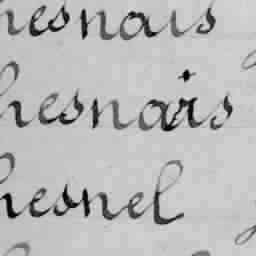 hesnais
hesnais
hesnel